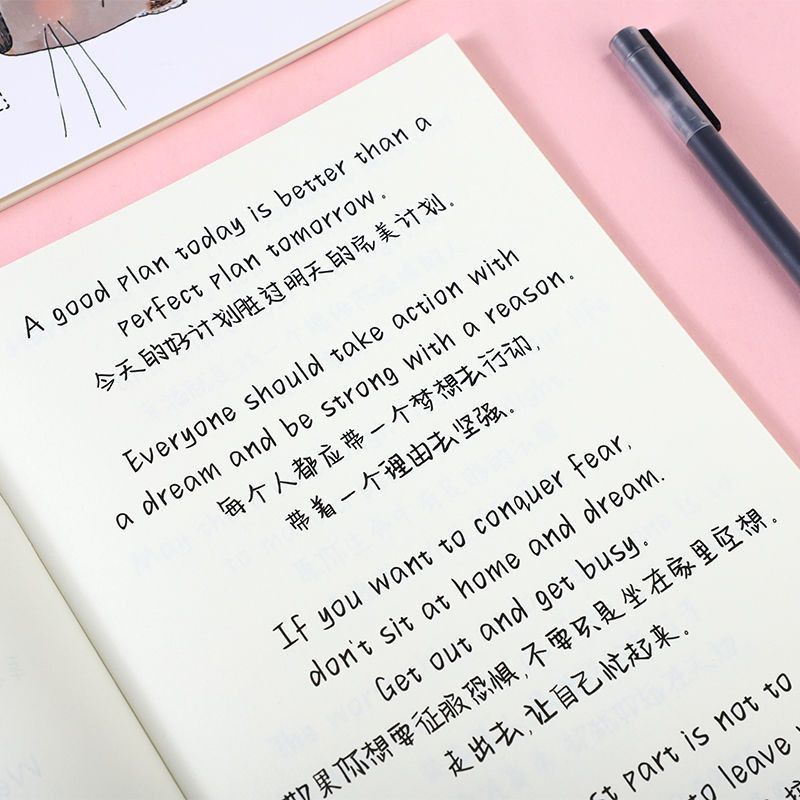 A good plan today is better than a
perfect plan tomorrow.
今天的好计划胜过明天的完美计划.
Everyone should take action with
a dream and be strong with a reason.
每个人都应带一个梦想去行动,
带着一个理由去坚强.
If you want to conquer fear,
don't sit at home and dream.
Get out and get busy.
如果你想要征服恐惧,不要只是坐在家里空想.
走出去,让自己忙起来.
part is not to
to leave